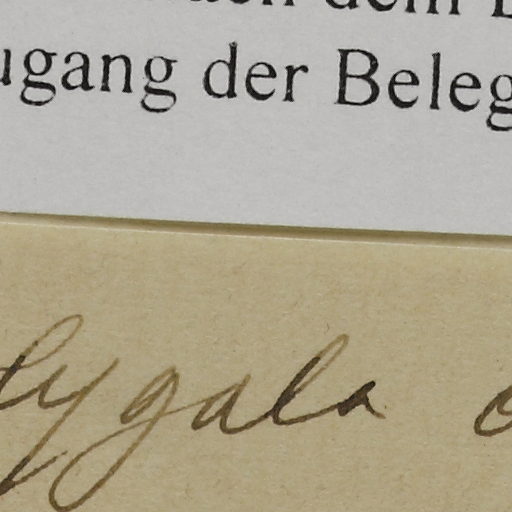 dem
ugang der Beleg
lygala